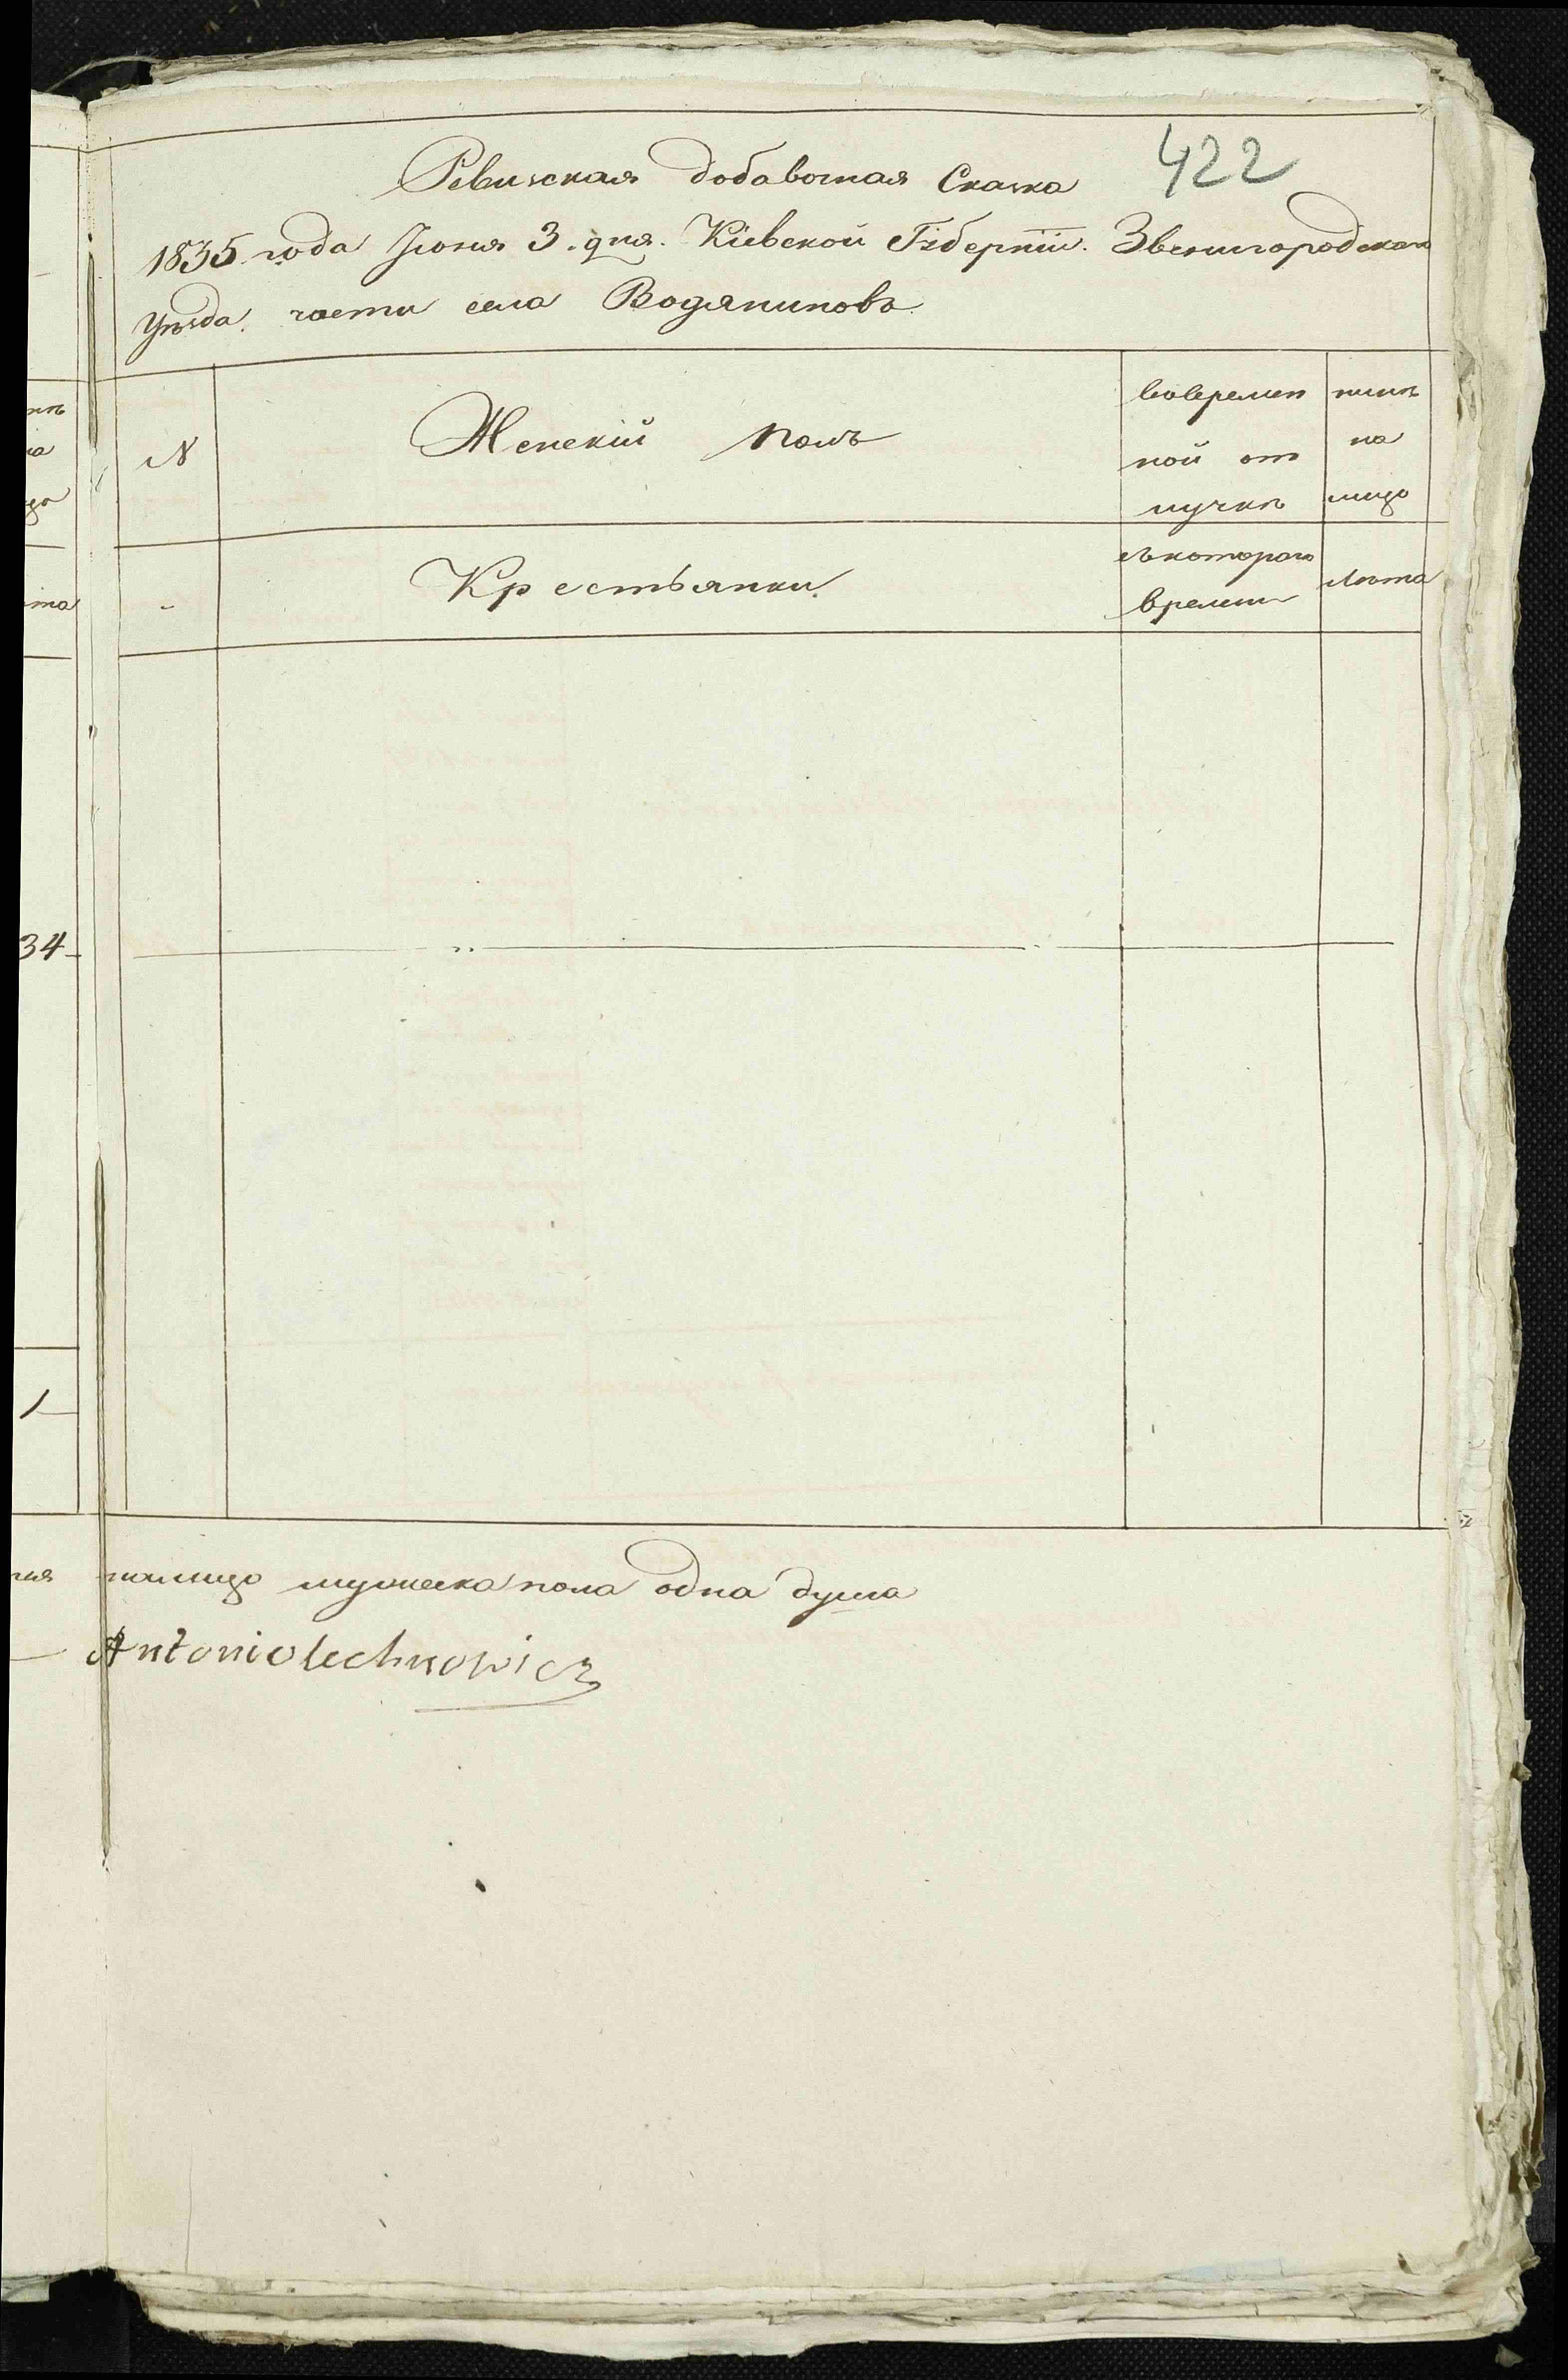 422
Ревизская добавочная Сказка
1835 года Іюня 3. дня. Кіевской Гȣберніи. Звенигородскаго
Уѣзда. части села Водяниковъ
№
Женскій полъ
вовремен
ной от
лучкѣ
нынѣ
на
лицо
Крестьянки.
съкотораго
времени
лѣта
34
1
налицо мужеска пола одна душа
Antoni Olechnowicz